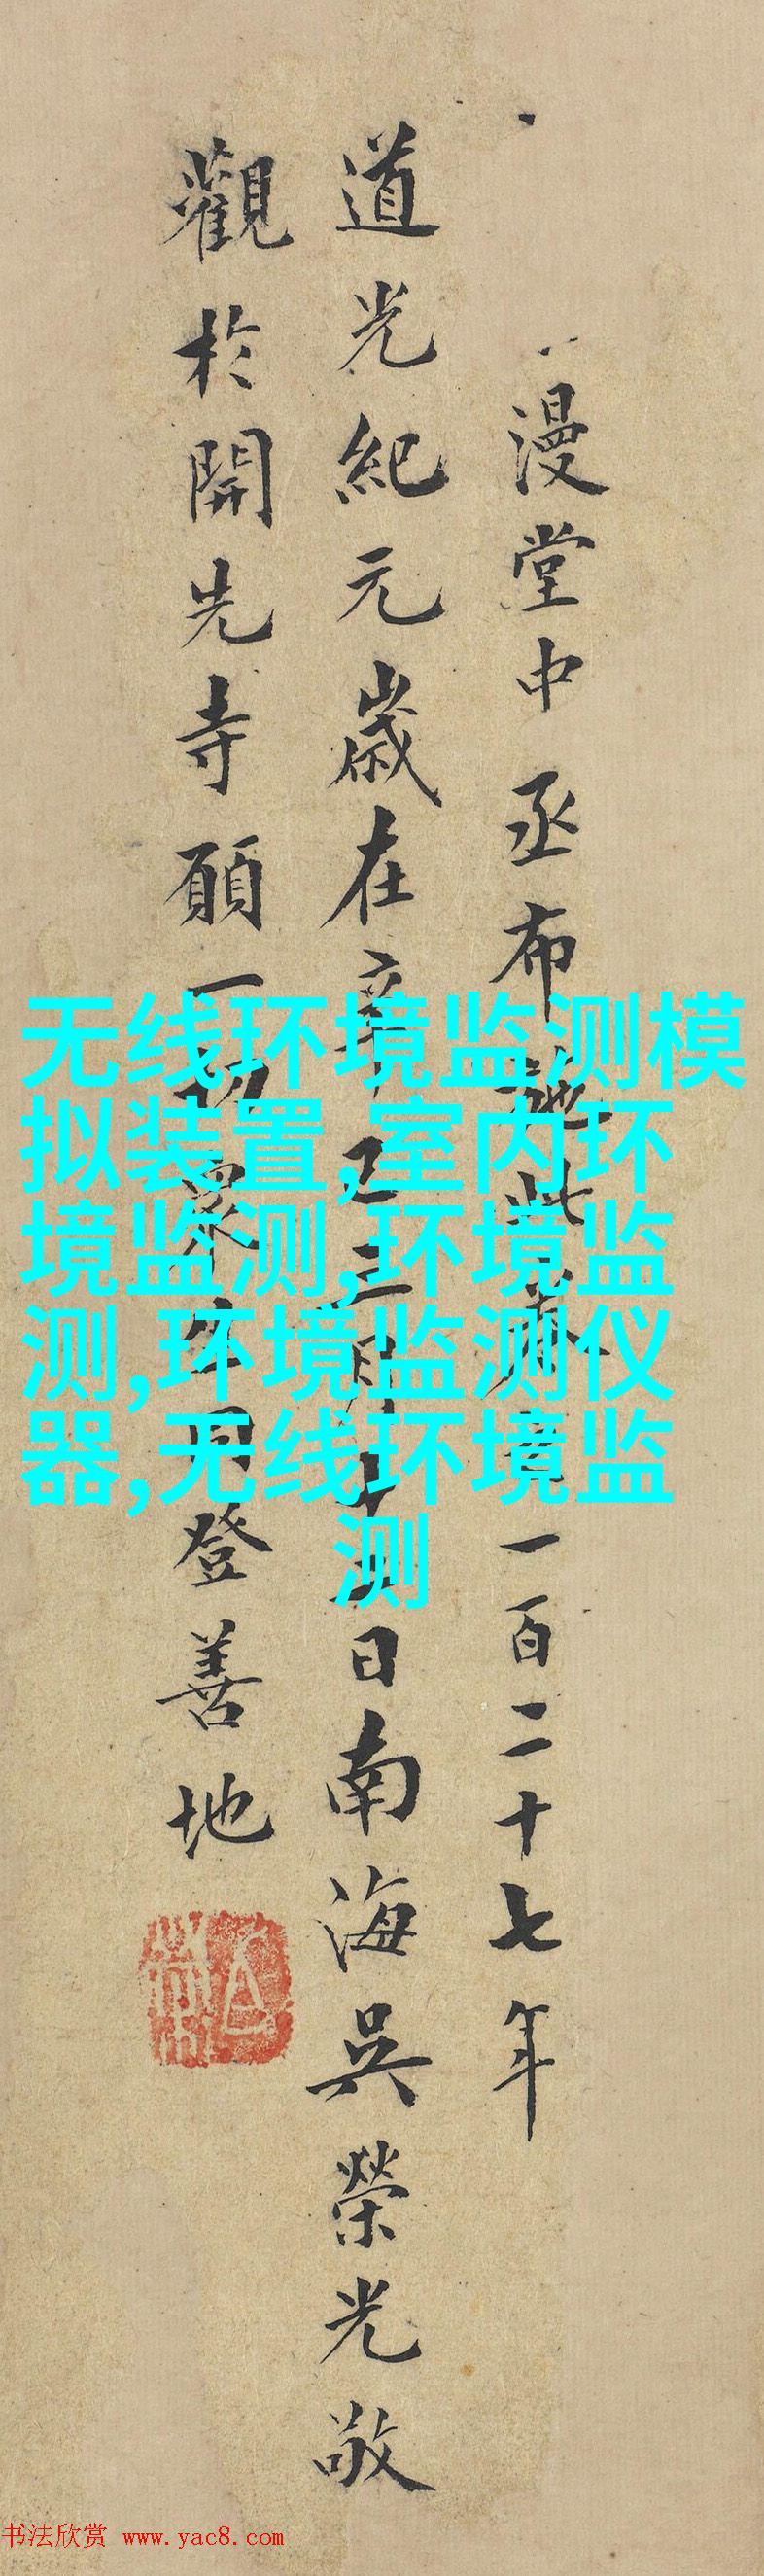 漫堂中丞布地此卷後一百二十七年
道光紀元歲在辛巳三月十五日南海吳榮光敬
觀於開先寺願一切眾生同登善地
无线环境监测模
拟装置,室内环
境监测,环境监
测,环境监测仪
器,无线环境监
测
书法欣赏 www.yac8.com